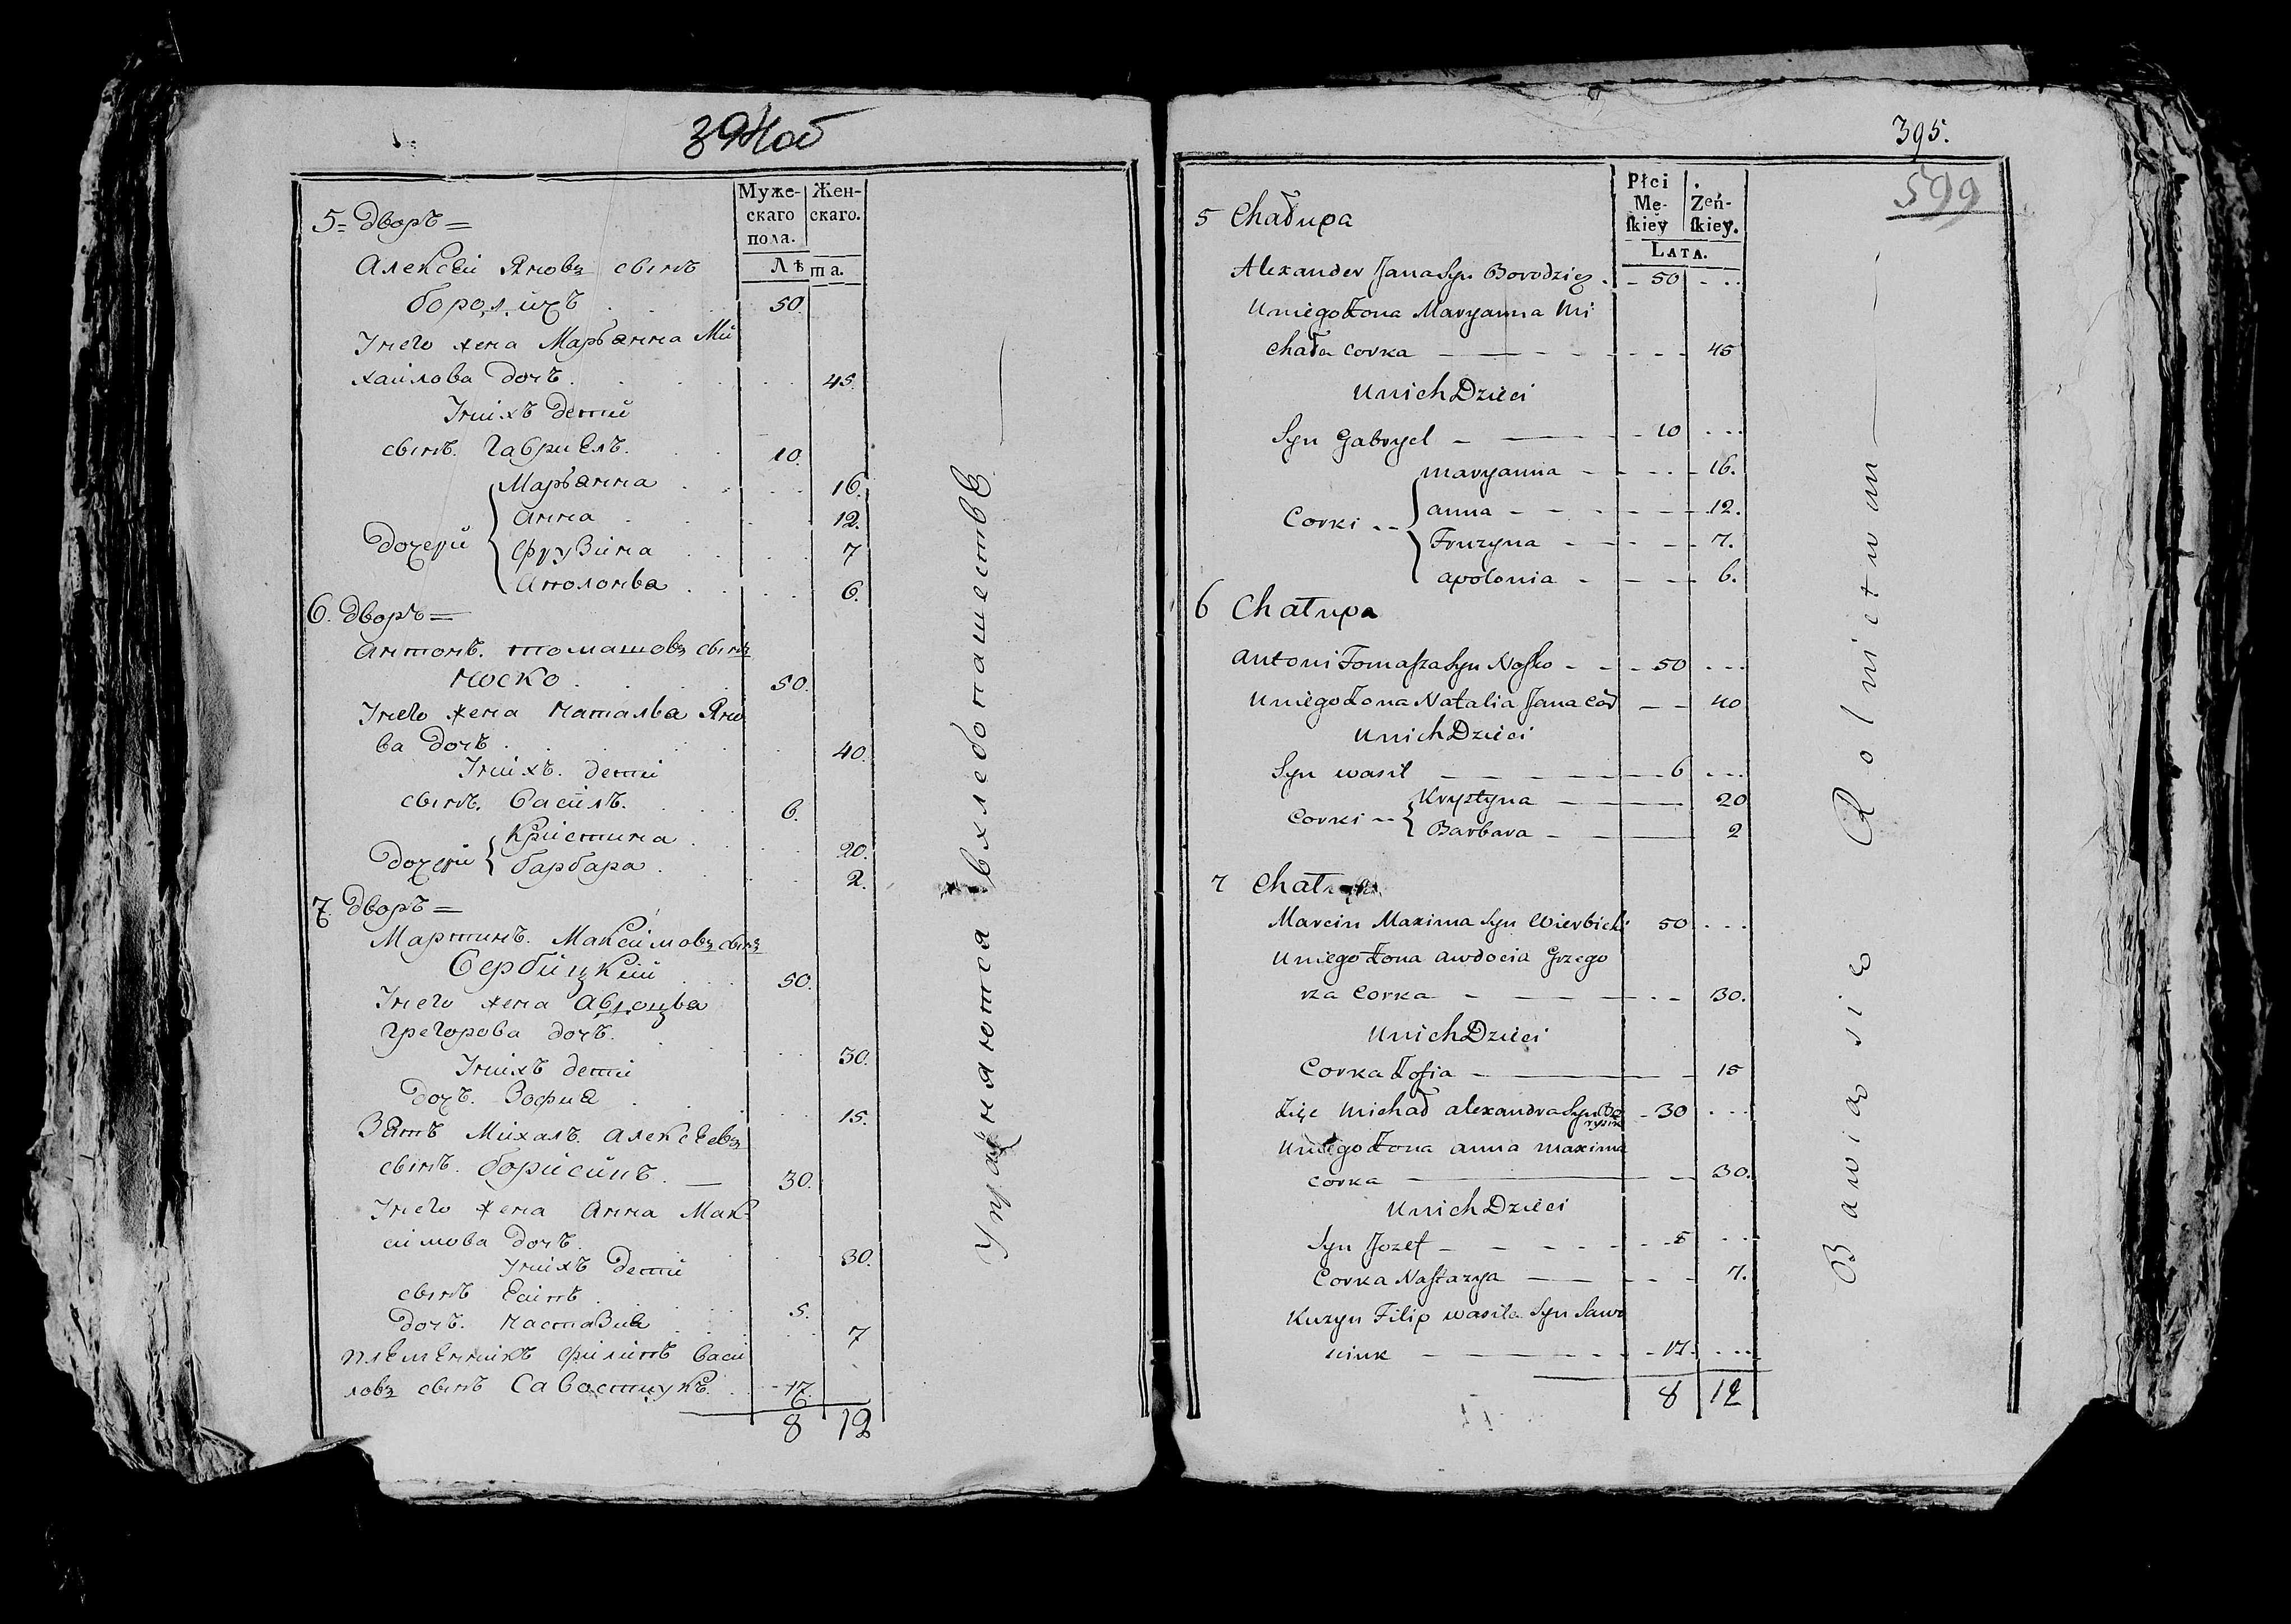 394об
Муже-
скаго
пола.
Жен-
скаго.
Лѣта.
5= Дворъ=
Алексѣй Яновъ сынъ
Бородичъ . . . 50.
Унего жена Марьянна Ми
хаилова дочь . . . 45.
Унихъ дети
сынъ. Гавриелъ. . . 10.
Марьянна . . . 16.
Анна . . . 12.
Дочери
Фрузина . . . 7
Аполонья . . . 6.
6. Дворъ=
Антонъ. Томашовъ сынъ
Носко . . . 50.
Унего жена Наталья Яно
ва дочь . . . 40.
Унихъ. дети
сынъ. Василь. . . 6.
Кристина . . . 20.
Дочери
Барбара . . . 2.
7. Дворъ=
Мартинъ. Максимовъ сынъ
Вербицкий . . . 50.
Унего жена Авдоцья
Грегорова дочь. . . 30.
Унихъ дети
дочь. Зофия . . . 15.
Зять Михалъ. Алексеевъ
сынъ. Борисикъ. — 30.
Унего жена Анна Мак-
симова дочь . . . 30.
Унихъ дети
сынъ Есипъ . . . 5.
дочь. Настазия . . . 7
племенникъ Филипъ Васи
ловъ сынъ Савостиукъ. . 17.
8 12
Упражняются вхлебопашестве
395.
599
Płci
Mę-
ſkiey
Żeń-
ſkiey.
LATA.
5 Chałupa
Alexander Jana Syn Borodzicz . - 50 - . .
Uniego Żona Maryanna Mi
chała Corka - — - - - - - 45
Unich Dzieci
Syn Gabryel - — - 10 . . .
Maryanna - - - . - 16.
Anna - - - - - - 12.
Corki - -
Fruzyna - - - - - 7.
Apolonia - - - - 6.
6 Chałupa
Antoni Tomaſza Syn Noſko - - - 50 . . .
Uniego Żona Natalia Jana Cor - - 40
Unich Dzieci
Syn Wasil - - - - - - 6 . . .
Krystyna — — 20
Corki - -
Barbara - - — 2
7 Chałupa
Marcin Maxima Syn Wierbicki 50 . . .
Uniego Żona Awdocia Grzego
rza Corka - - - — - - 30.
Unich Dzieci
Corka Zofia - — - - 15
Zięc Michał Alexandra Syn Bo
rysik - 30 . . .
Uniego Żona Anna Maxima
Corka — - 30.
Unich Dzieci
Syn Jozef - - - - - - 5 . .
Corka Naſtazya — - - - 7.
Kuzyn Filip Wasila Syn Sawo
niuk - — - - - - 17. . . .
8 12
Bawią się Rolnictwem